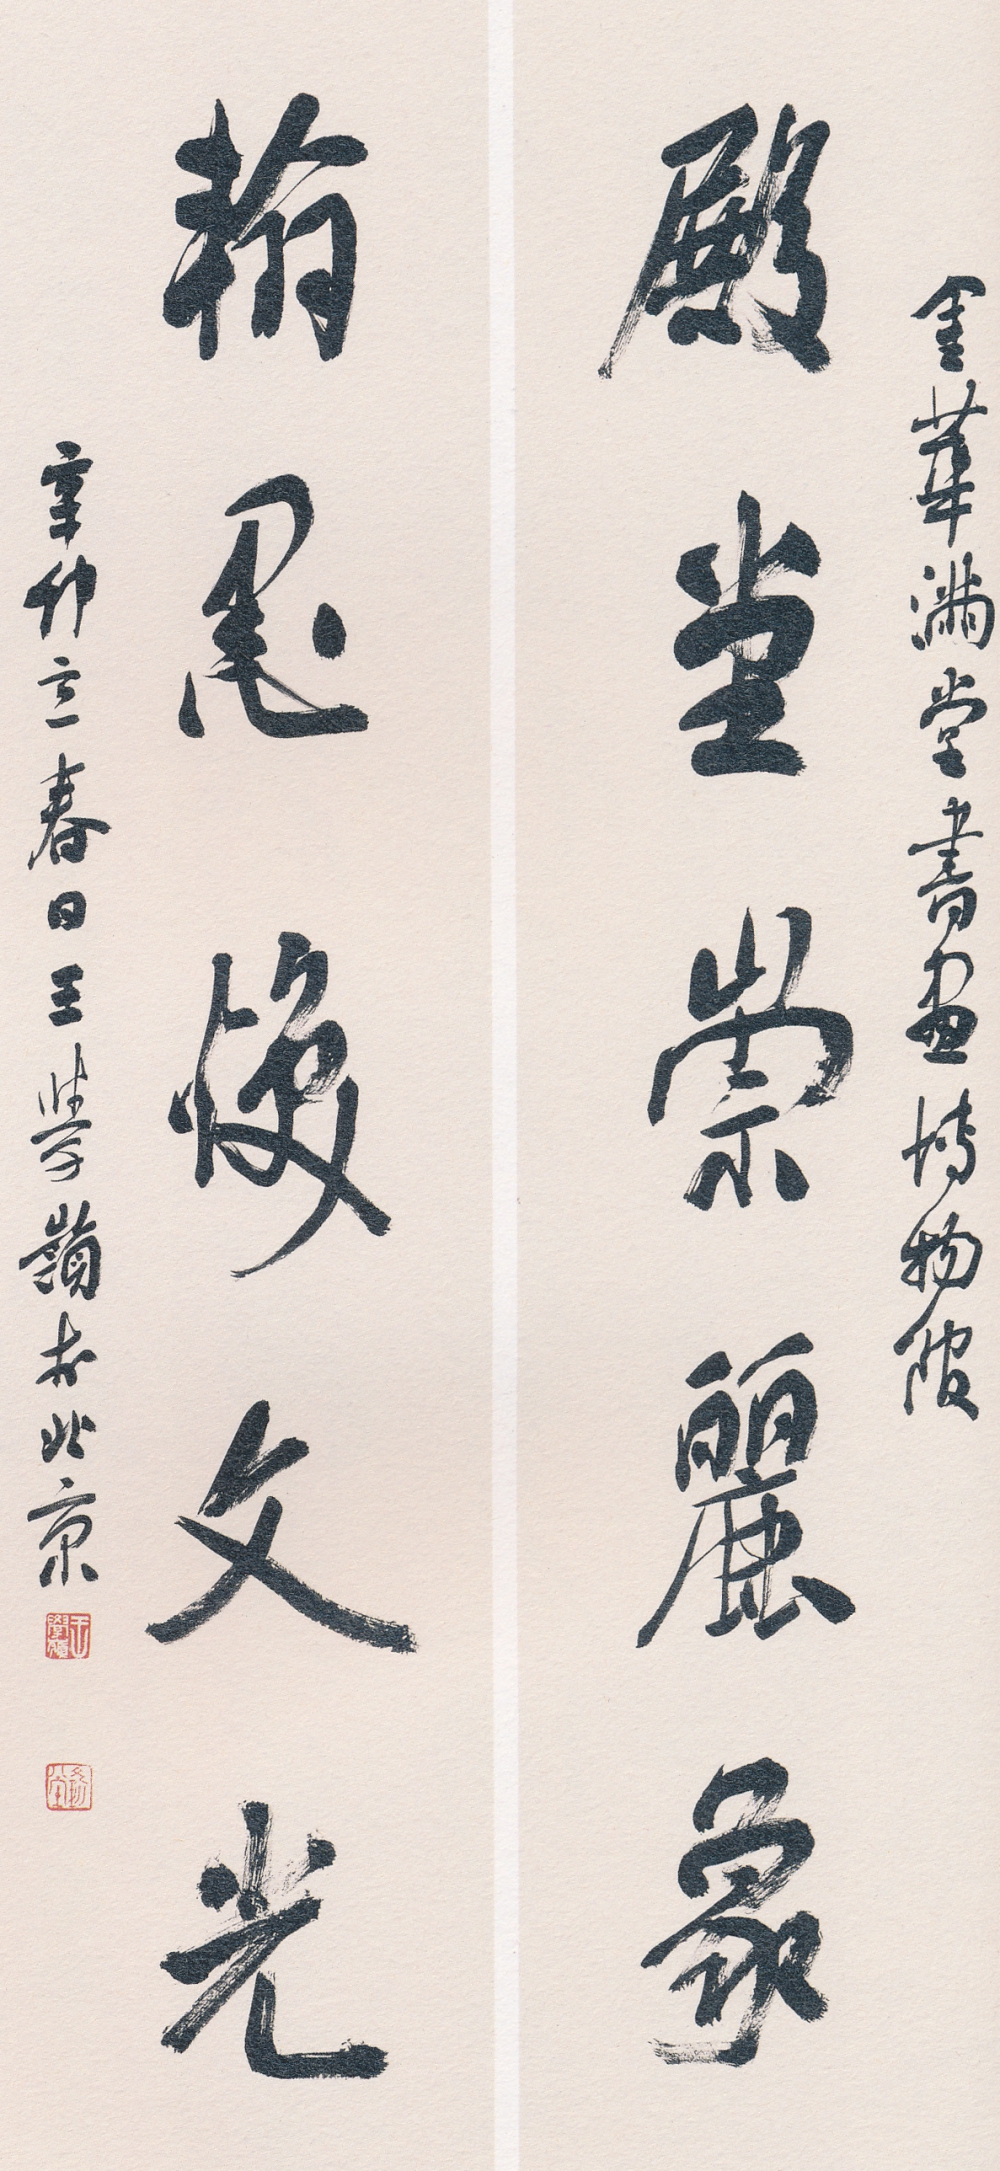 金華滿堂書畫博物院
殿堂崇麗象
翰墨煥文光
辛卯立春日王學嶺於北京